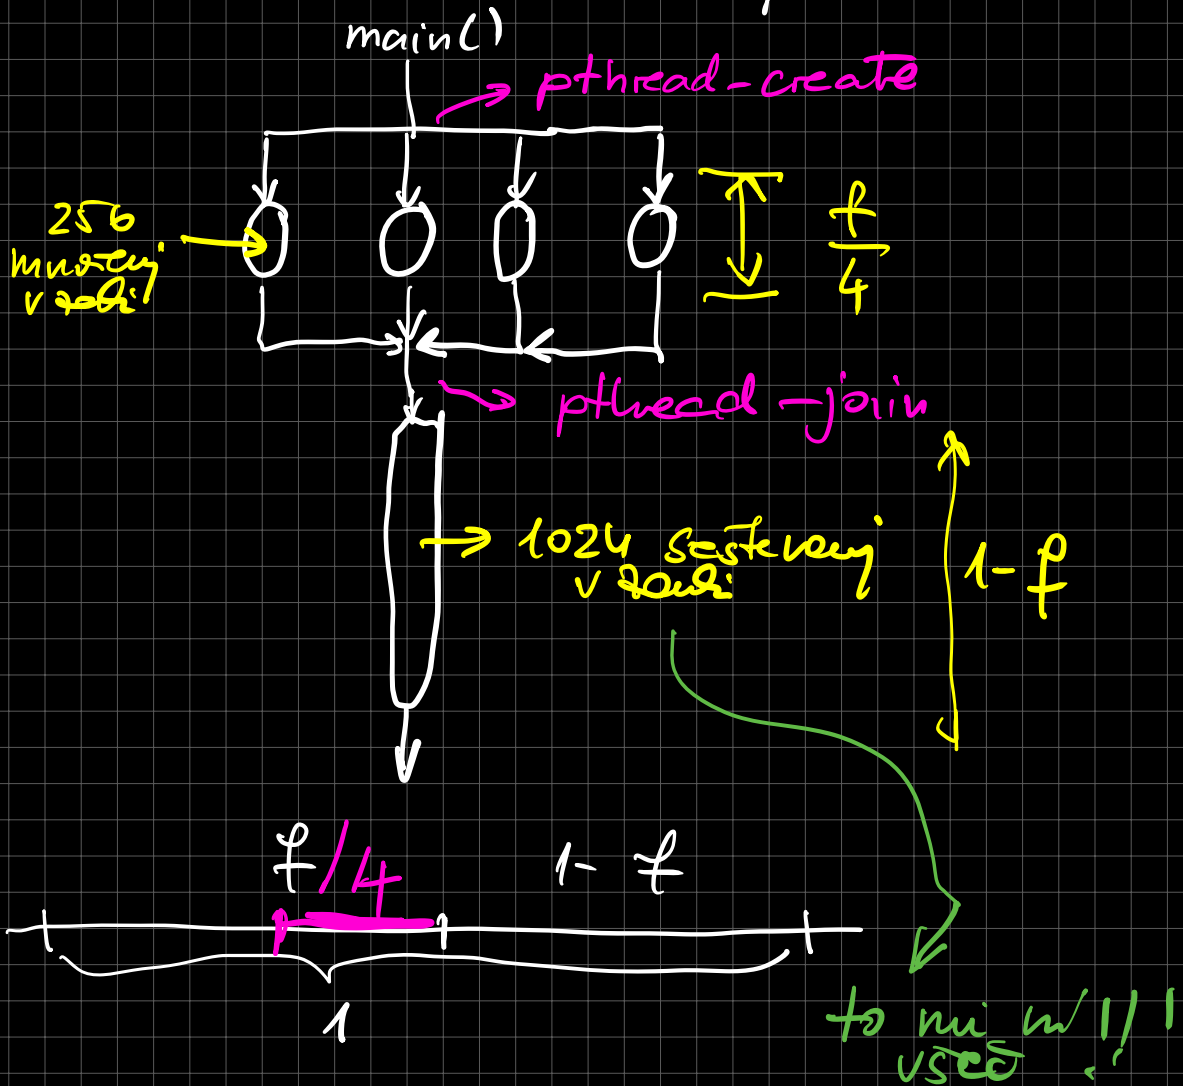 main()
pthread-create
256
množenj
v zanki
f
4
pthread-join
1024 seštevanj
v zanki
1-f
f/4
1-f
1
to mi ni
všeč !!!!